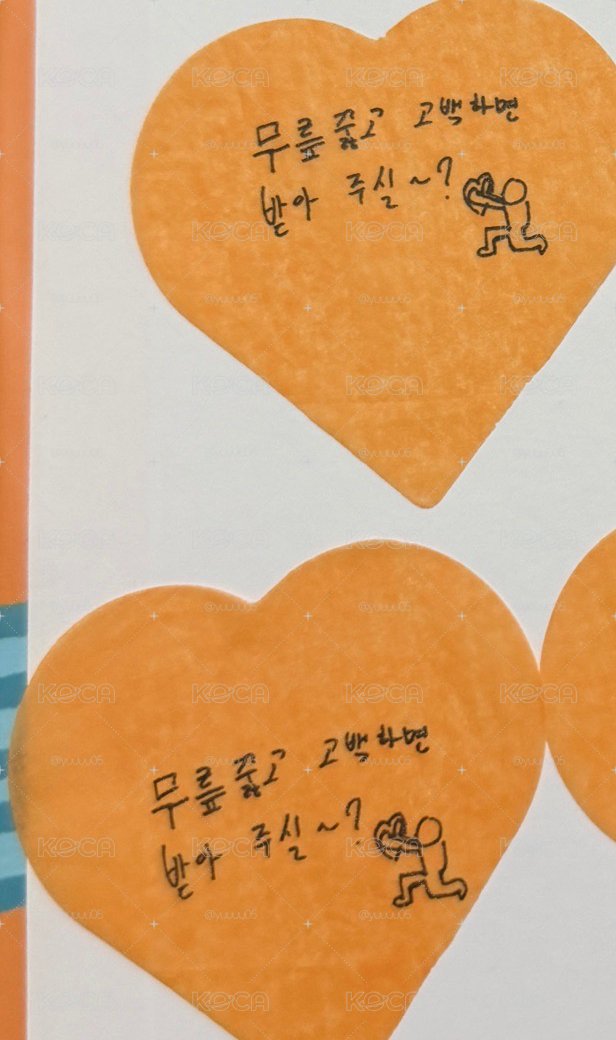 무릎 꿇고 고백하면
받아 주실 ~?
무릎 꿇고 고백하면
받아 주실 ~?
KOCA
@yuuu05